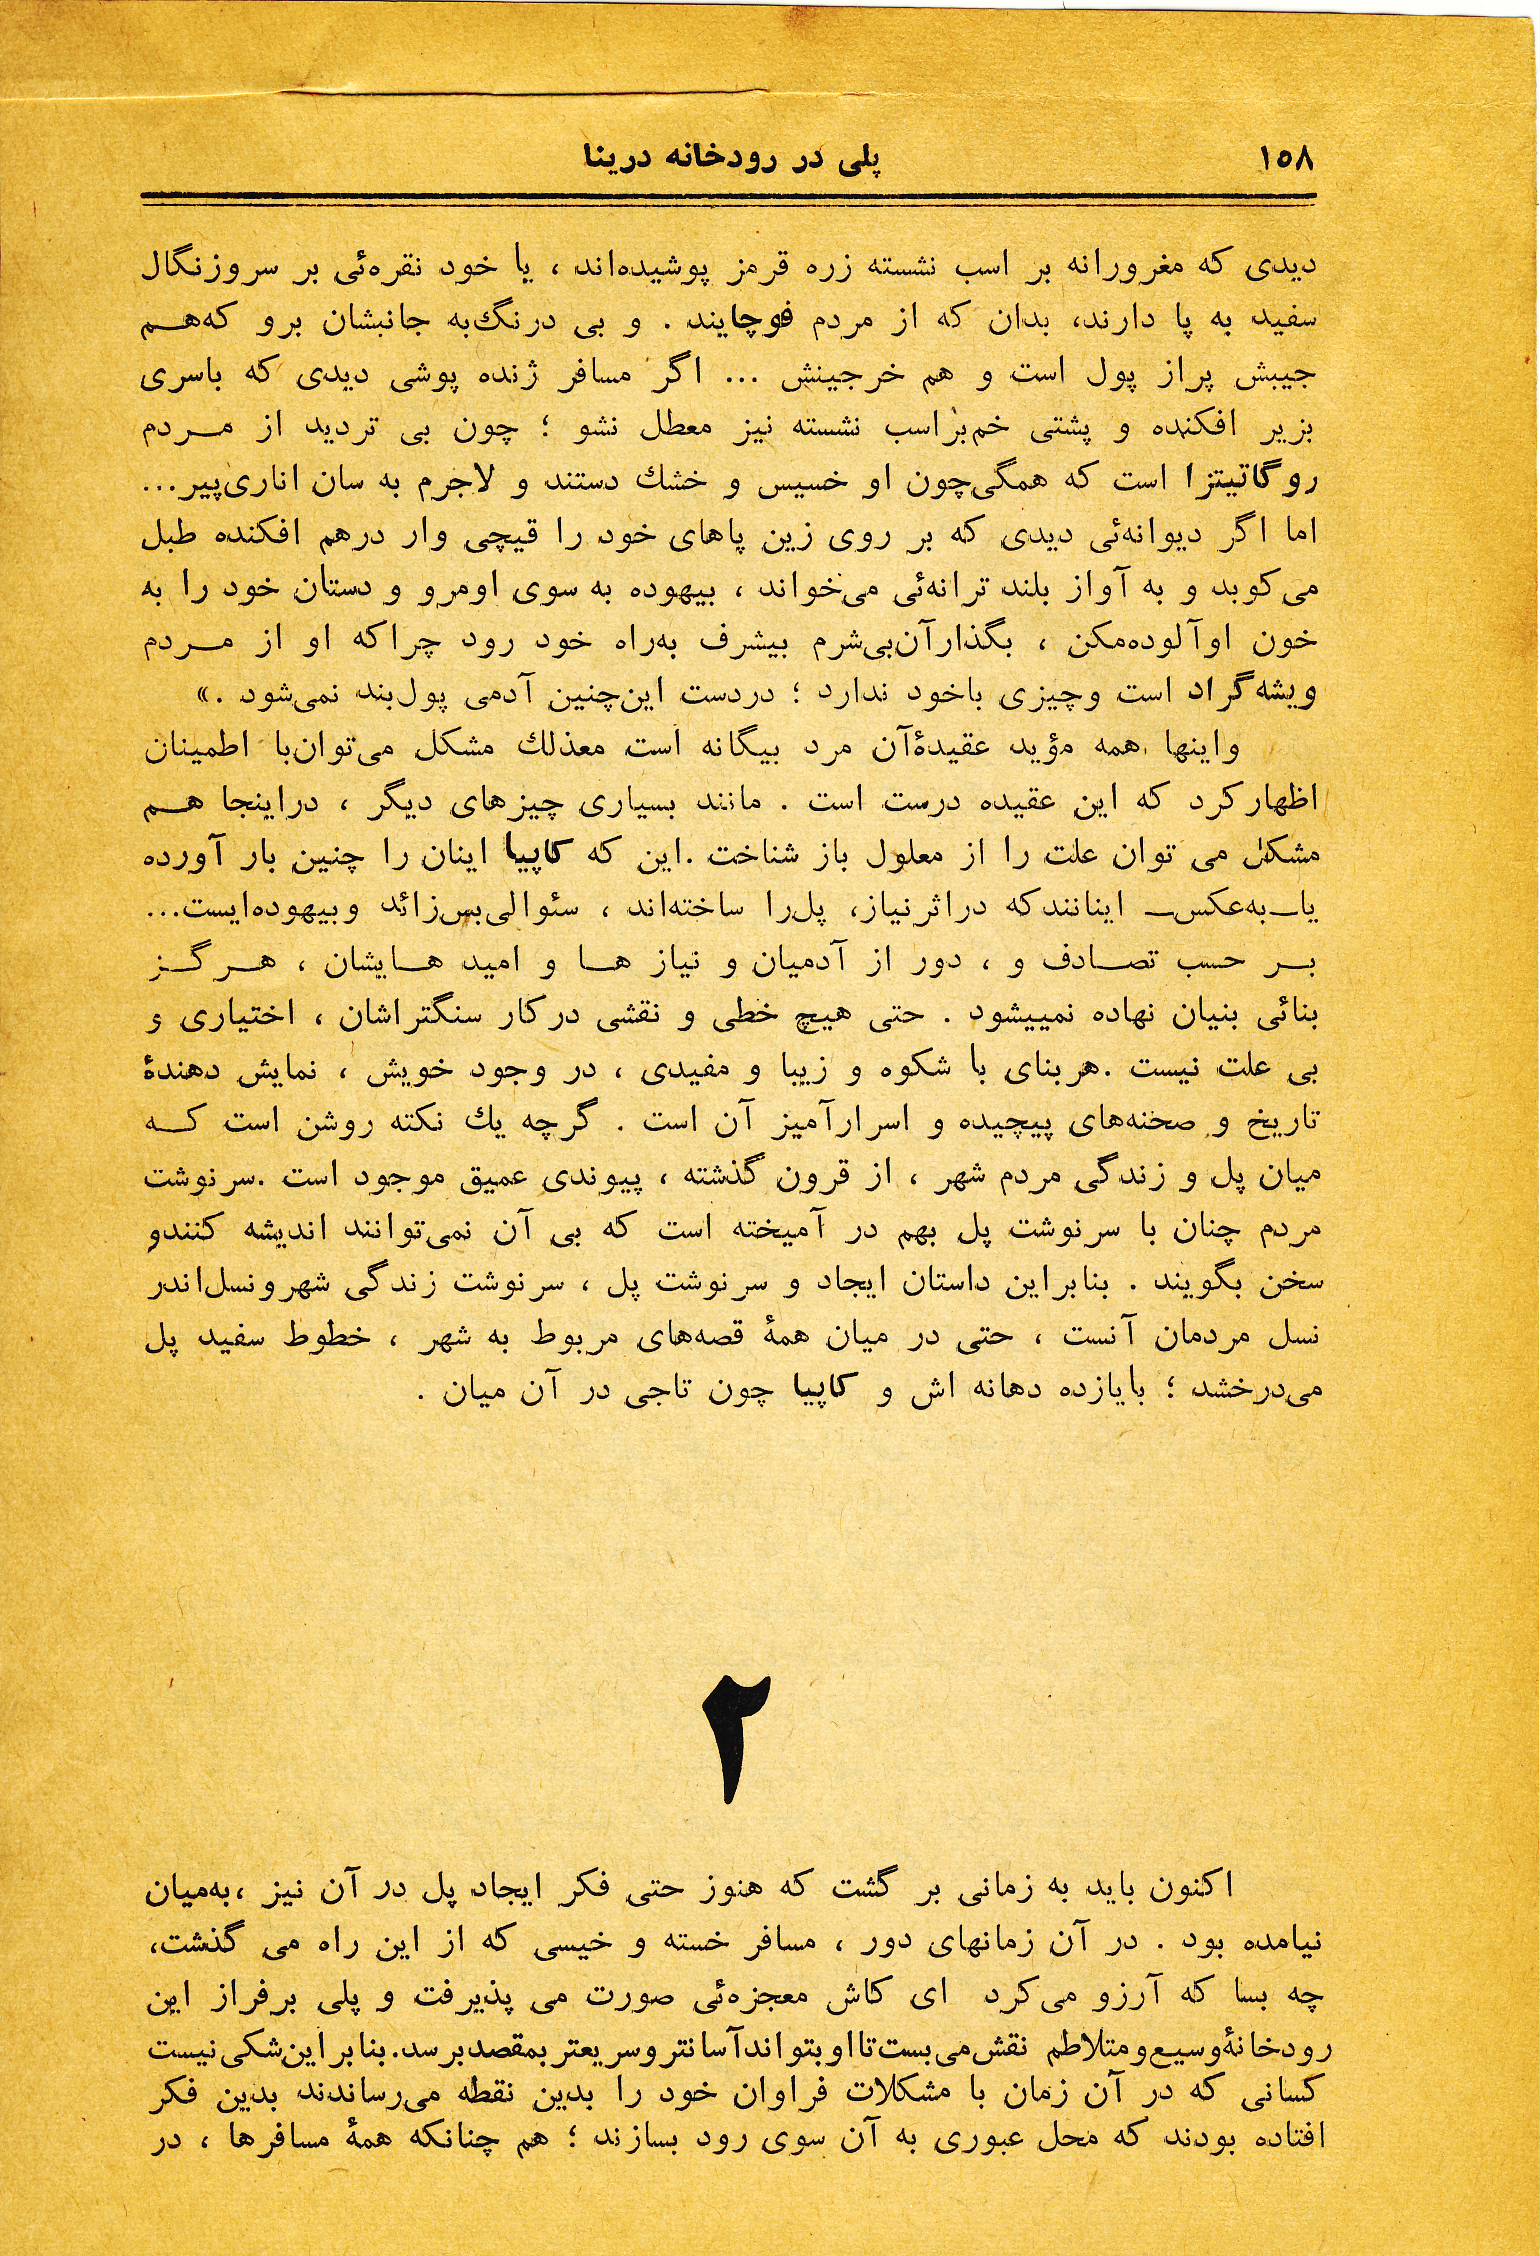 ۱۵۸
پلی در رودخانه درینا
دیدی که مغرورانه بر اسب نشسته زره قرمز پوشیده‌اند ، یا خود نقره‌ئی بر سروزنگال
سفید به پا دارند، بدان که از مردم فوچایند . و بی درنگ‌به جانبشان برو که‌هـم
جیبش پراز پول است و هم خرجینش ... اگر مسافر ژنده پوشی دیدی که باسری
بزیر افکنده و پشتی خم‌براسب نشسته نیز معطل نشو ؛ چون بی تردید از مـردم
روگاتیتزا است که همگی‌چون او خسیس و خشك دستند و لاجرم به سان اناری‌پیر...
اما اگر دیوانه‌ئی دیدی که بر روی زین پاهای خود را قیچی وار درهم افکنده طبل
می‌کوبد و به آواز بلند ترانه‌ئی می‌خواند ، بیهوده به سوی اومرو و دستان خود را به
خون اوآلوده‌مکن ، بگذارآن‌بی‌شرم بیشرف به‌راه خود رود چراکه او از مـردم
ویشه‌گراد است وچیزی باخود ندارد ؛ دردست این‌چنین آدمی پول‌بند نمی‌شود .»
واینها همه مؤید عقیدهٔ‌آن مرد بیگانه است معذلك مشکل می‌توان‌با اطمینان
اظهارکرد که این عقیده درست است . مانند بسیاری چیزهای دیگر ، دراینجا هـم
مشکل می توان علت را از معلول باز شناخت .این که کاپیا اینان را چنین بار آورده
یا_به‌عکس_ اینانندکه دراثرنیاز، پل‌را ساخته‌اند ، سئوالی‌بس‌زائد وبیهوده‌ایست...
بـر حسب تصـادف و ، دور از آدمیان و نیاز هـا و امید هـایشان ، هـرگـز
بنائی بنیان نهاده نمییشود . حتی هیچ خطی و نقشی درکار سنگتراشان ، اختیاری و
بی علت نیست .هربنای با شکوه و زیبا و مفیدی ، در وجود خویش ، نمایش دهندهٔ
تاریخ و صحنه‌های پیچیده و اسرارآمیز آن است . گرچه یك نکته روشن است کـه
میان پل و زندگی مردم شهر ، از قرون گذشته ، پیوندی عمیق موجود است .سرنوشت
مردم چنان با سرنوشت پل بهم در آمیخته است که بی آن نمی‌توانند اندیشه کنندو
سخن بگویند . بنابراین داستان ایجاد و سرنوشت پل ، سرنوشت زندگی شهرونسل‌اندر
نسل مردمان آنست ، حتی در میان همهٔ قصه‌های مربوط به شهر ، خطوط سفید پل
می‌درخشد ؛ بایازده دهانه اش و کاپیا چون تاجی در آن میان .
۲
اکنون باید به زمانی بر گشت که هنوز حتی فکر ایجاد پل در آن نیز ،به‌میان
نیامده بود . در آن زمانهای دور ، مسافر خسته و خیسی که از این راه می گذشت،
چه بسا که آرزو می‌کرد ای کاش معجزه‌ئی صورت می پذیرفت و پلی برفراز این
رودخانهٔ‌وسیع‌ومتلاطم نقش‌می‌بست‌تااوبتواندآسانتروسریعتربمقصدبرسد.بنابراین‌شکی‌نیست
کسانی که در آن زمان با مشکلات فراوان خود را بدین نقطه می‌رساندند بدین فکر
افتاده بودند که محل عبوری به آن سوی رود بسازند ؛ هم چنانکه همهٔ مسافرها ، در